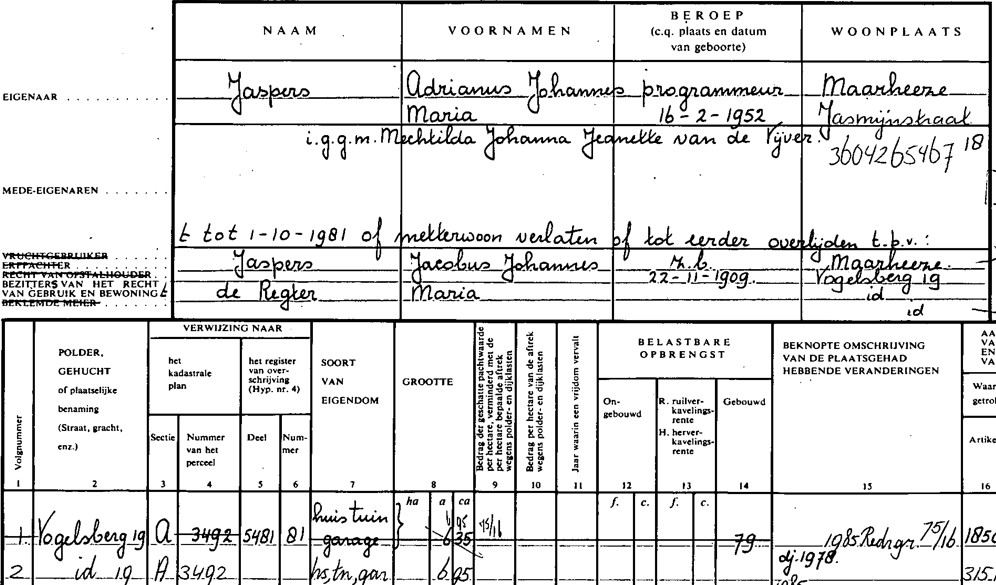 NAAM VOORNAMEN BEROEP WOONPLAATS
(c.q. plaats en datum
van geboorte)
EIGENAAR Jaspers Adrianus Johannes programmeur Maarheeze
Maria 16-2-1952 Jasmijnstraat
i.g.g.m. Mechtilda Johanna Jeanette van de Vijver. 18
3604265467
MEDE-EIGENAREN
t tot 1-10-1981 of metterwoon verlaten of tot eerder overlijden t.b.v.:
VRUCHTGEBRUIKER
ERFPACHTER Jaspers Jacobus Johannes z.b. Maarheeze
RECHT VAN OPSTALHOUDER 22-11-1909. Vogelsberg 19
BEZITTERS VAN HET RECHT
VAN GEBRUIK EN BEWONING t de Regter Maria id
BEKLEMDE MEIER id
VERWIJZING NAAR
Volgnummer
POLDER,
GEHUCHT
of plaatselijke
benaming
(Straat, gracht,
enz.)
het
kadastrale
plan
het register
van over-
schrijving
(Hyp. nr. 4)
Sectie
Nummer
van het
perceel
Deel
Num-
mer
SOORT
VAN
EIGENDOM
GROOTTE
Bedrag der geschatte pachtwaarde
per hectare, verminderd met de
per hectare bepaalde aftrek
wegens polder- en dijklasten
Bedrag per hectare van de aftrek
wegens polder- en dijklasten
Jaar waarin een vrijdom vervalt
BELASTBARE
OPBRENGST
On-
gebouwd
R. ruilver-
kavelings-
rente
H. herver-
kavelings-
rente
Gebouwd
BEKNOPTE OMSCHRIJVING
VAN DE PLAATSGEHAD
HEBBENDE VERANDERINGEN
AA
VA
EN
VA
Waar
getrol
Artike
1 2 3 4 5 6 7 8 9 10 11 12 13 14 15 16
ha a ca f. c. f. c.
1 Vogelsberg 19 A 3492 5481 81 huis tuin
garage 6 35 75/16 79 1985 Redr.gr 75/16 1850
dj. 1978.
2 id 19 A 3492 hs, tn, gar 6 95 315
1985